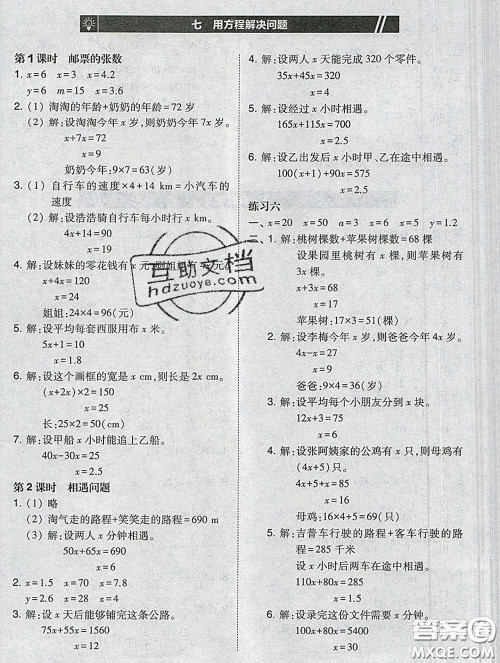 七 用方程解决问题
第1课时 邮票的张数
1. x=6 x=3 x=4.2
y=6 m=15 x=3.6
2. (1) 淘淘的年龄+奶奶的年龄=72 岁
(2) 解:设淘淘今年 x 岁,则奶奶今年 7x 岁。
x+7x=72
x=9
奶奶今年:9×7=63(岁)
3. (1) 自行车的速度×4+14 km=小汽车的
速度
(2) 解:设浩浩骑自行车每小时行 x km。
4x+14=90
x=19
4. 解:设妹妹的零花钱有 x 元,则姐姐
x+4x=120
x=24
姐姐:24×4=96(元)
5. 解:设平均每套西服用布 x 米。
5x+1=10
x=1.8
6. 解:设这个画框的宽是 x cm,则长是 2x cm。
(x+2x)×2=150
x=25
长:25×2=50(cm)
7. 解:设甲船 x 小时能追上乙船。
40x-30x=25
x=2.5
第2课时 相遇问题
1. (1) 略
(2) 淘气走的路程+笑笑走的路程=650米
(3) 解:设两人 x 分钟相遇。
50x+65x=690
x=6
2. x=1.5 x=70 x=7.8
y=2.6 x=28 x=15
3. 解:设 x 天后能够铺完这条公路。
75x+55x=1560
x=12
4. 解:设两人 x 天能完成 320 个零件。
35x+45x=320
x=4
5. 解:设经过 x 小时相遇。
165x+115x=700
x=2.5
6. 解:设乙出发后 x 小时甲、乙在途中相遇。
100(x+1)+90x=575
x=2.5
练习六
一、x=20 x=50 a=3 x=6 x=5 y=1.2
二、1. 解:桃树棵数+苹果树棵数=68 棵
设果园里桃树有 x 棵,则苹果树有
3x 棵。
x+3x=68
x=17
苹果树:17×3=51(棵)
2. 解:设李梅今年 x 岁,则爸爸今年 4x 岁。
4x-x=27
x=9
爸爸:9×4=36(岁)
3. 解:设平均每个小朋友分到 x 块。
12x+3=75
x=6
4. 解:设张阿姨家的公鸡有 x 只,则母鸡
有 4x 只。
x+4x=85
x=17
母鸡:17×4=68(只)
5. 解:吉普车行驶的路程+客车行驶的路
程=285 千米
设 x 小时后两车在途中相遇。
110x+80x=285
x=1.5
6. 解:设录完这份文件需要 x 分钟。
100x+80x=1440
x=8
互助文档
hdzuoye.com
答案圈
MXQE.COM